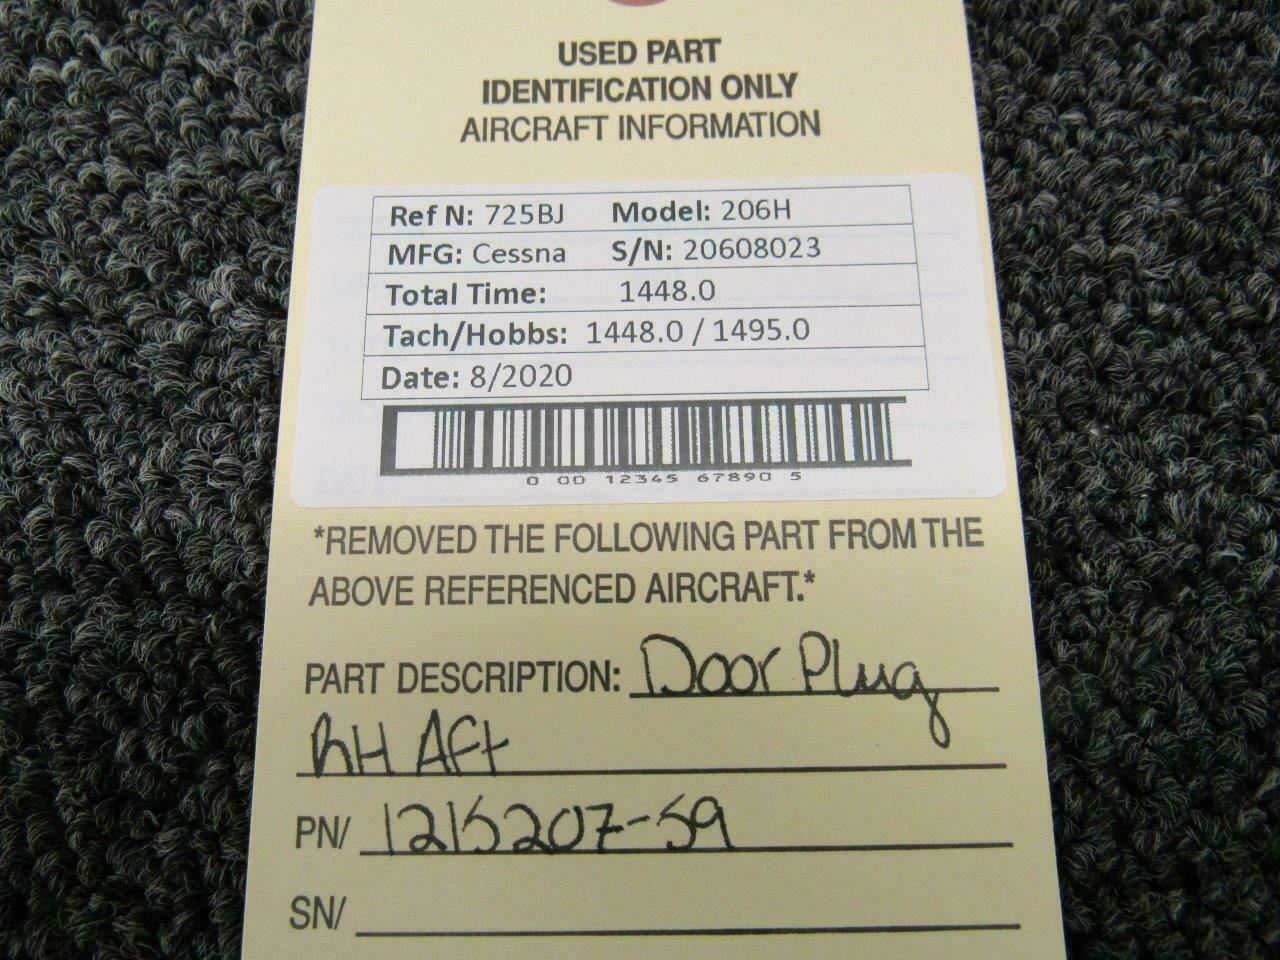 USED PART
IDENTIFICATION ONLY
AIRCRAFT INFORMATION
Ref N: 725BJ Model: 206H
MFG: Cessna S/N: 20608023
Total Time: 1448.0
Tach/Hobbs: 1448.0 / 1495.0
Date: 8/2020
0 00 12345 67890 5
*REMOVED THE FOLLOWING PART FROM THE
ABOVE REFERENCED AIRCRAFT.*
PART DESCRIPTION: Door Plug
RH Aft
PN/ 1215207-59
SN/